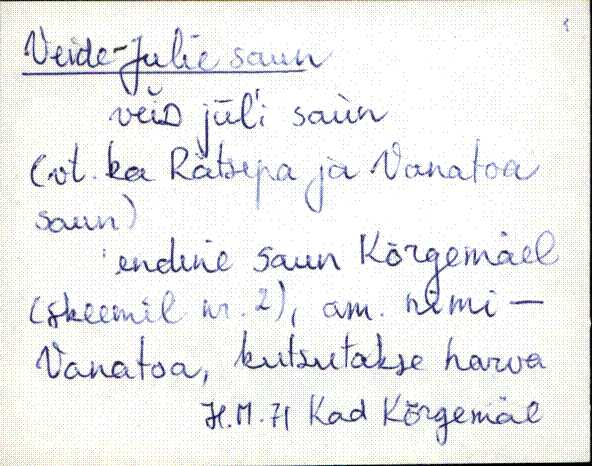 Veide-Julie saun
veiᴅ jūl'i saùn
(vt. ka Rätsepa ja Vanatoa
saun)
endine saun Kõrgemäel
(skeemil nr. 2), am. nimi —
Vanatoa, kutsutakse harva
H.M. 71 Kad Kõrgemäe